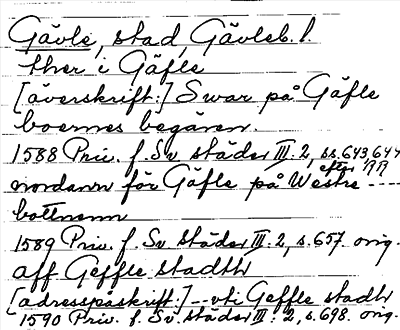 Gävle, stad, Gävleb. l.
ther i Gäfle
[överskrift:] Swar på Gäfle
boernes begären.
1588 Priv. f. Sv. städer III: 2, s.s. 643, 644
efter RR
nordann för Gäfle på Westre ----
bottnenn
1589 Priv. f. Sv. städer III: 2, s. 657. orig.
aff Geffle stadtt
[adresspåskrift:] -- vti Geffle stadt
1590 Priv. f. Sv. städer III: 2, s. 698. orig.